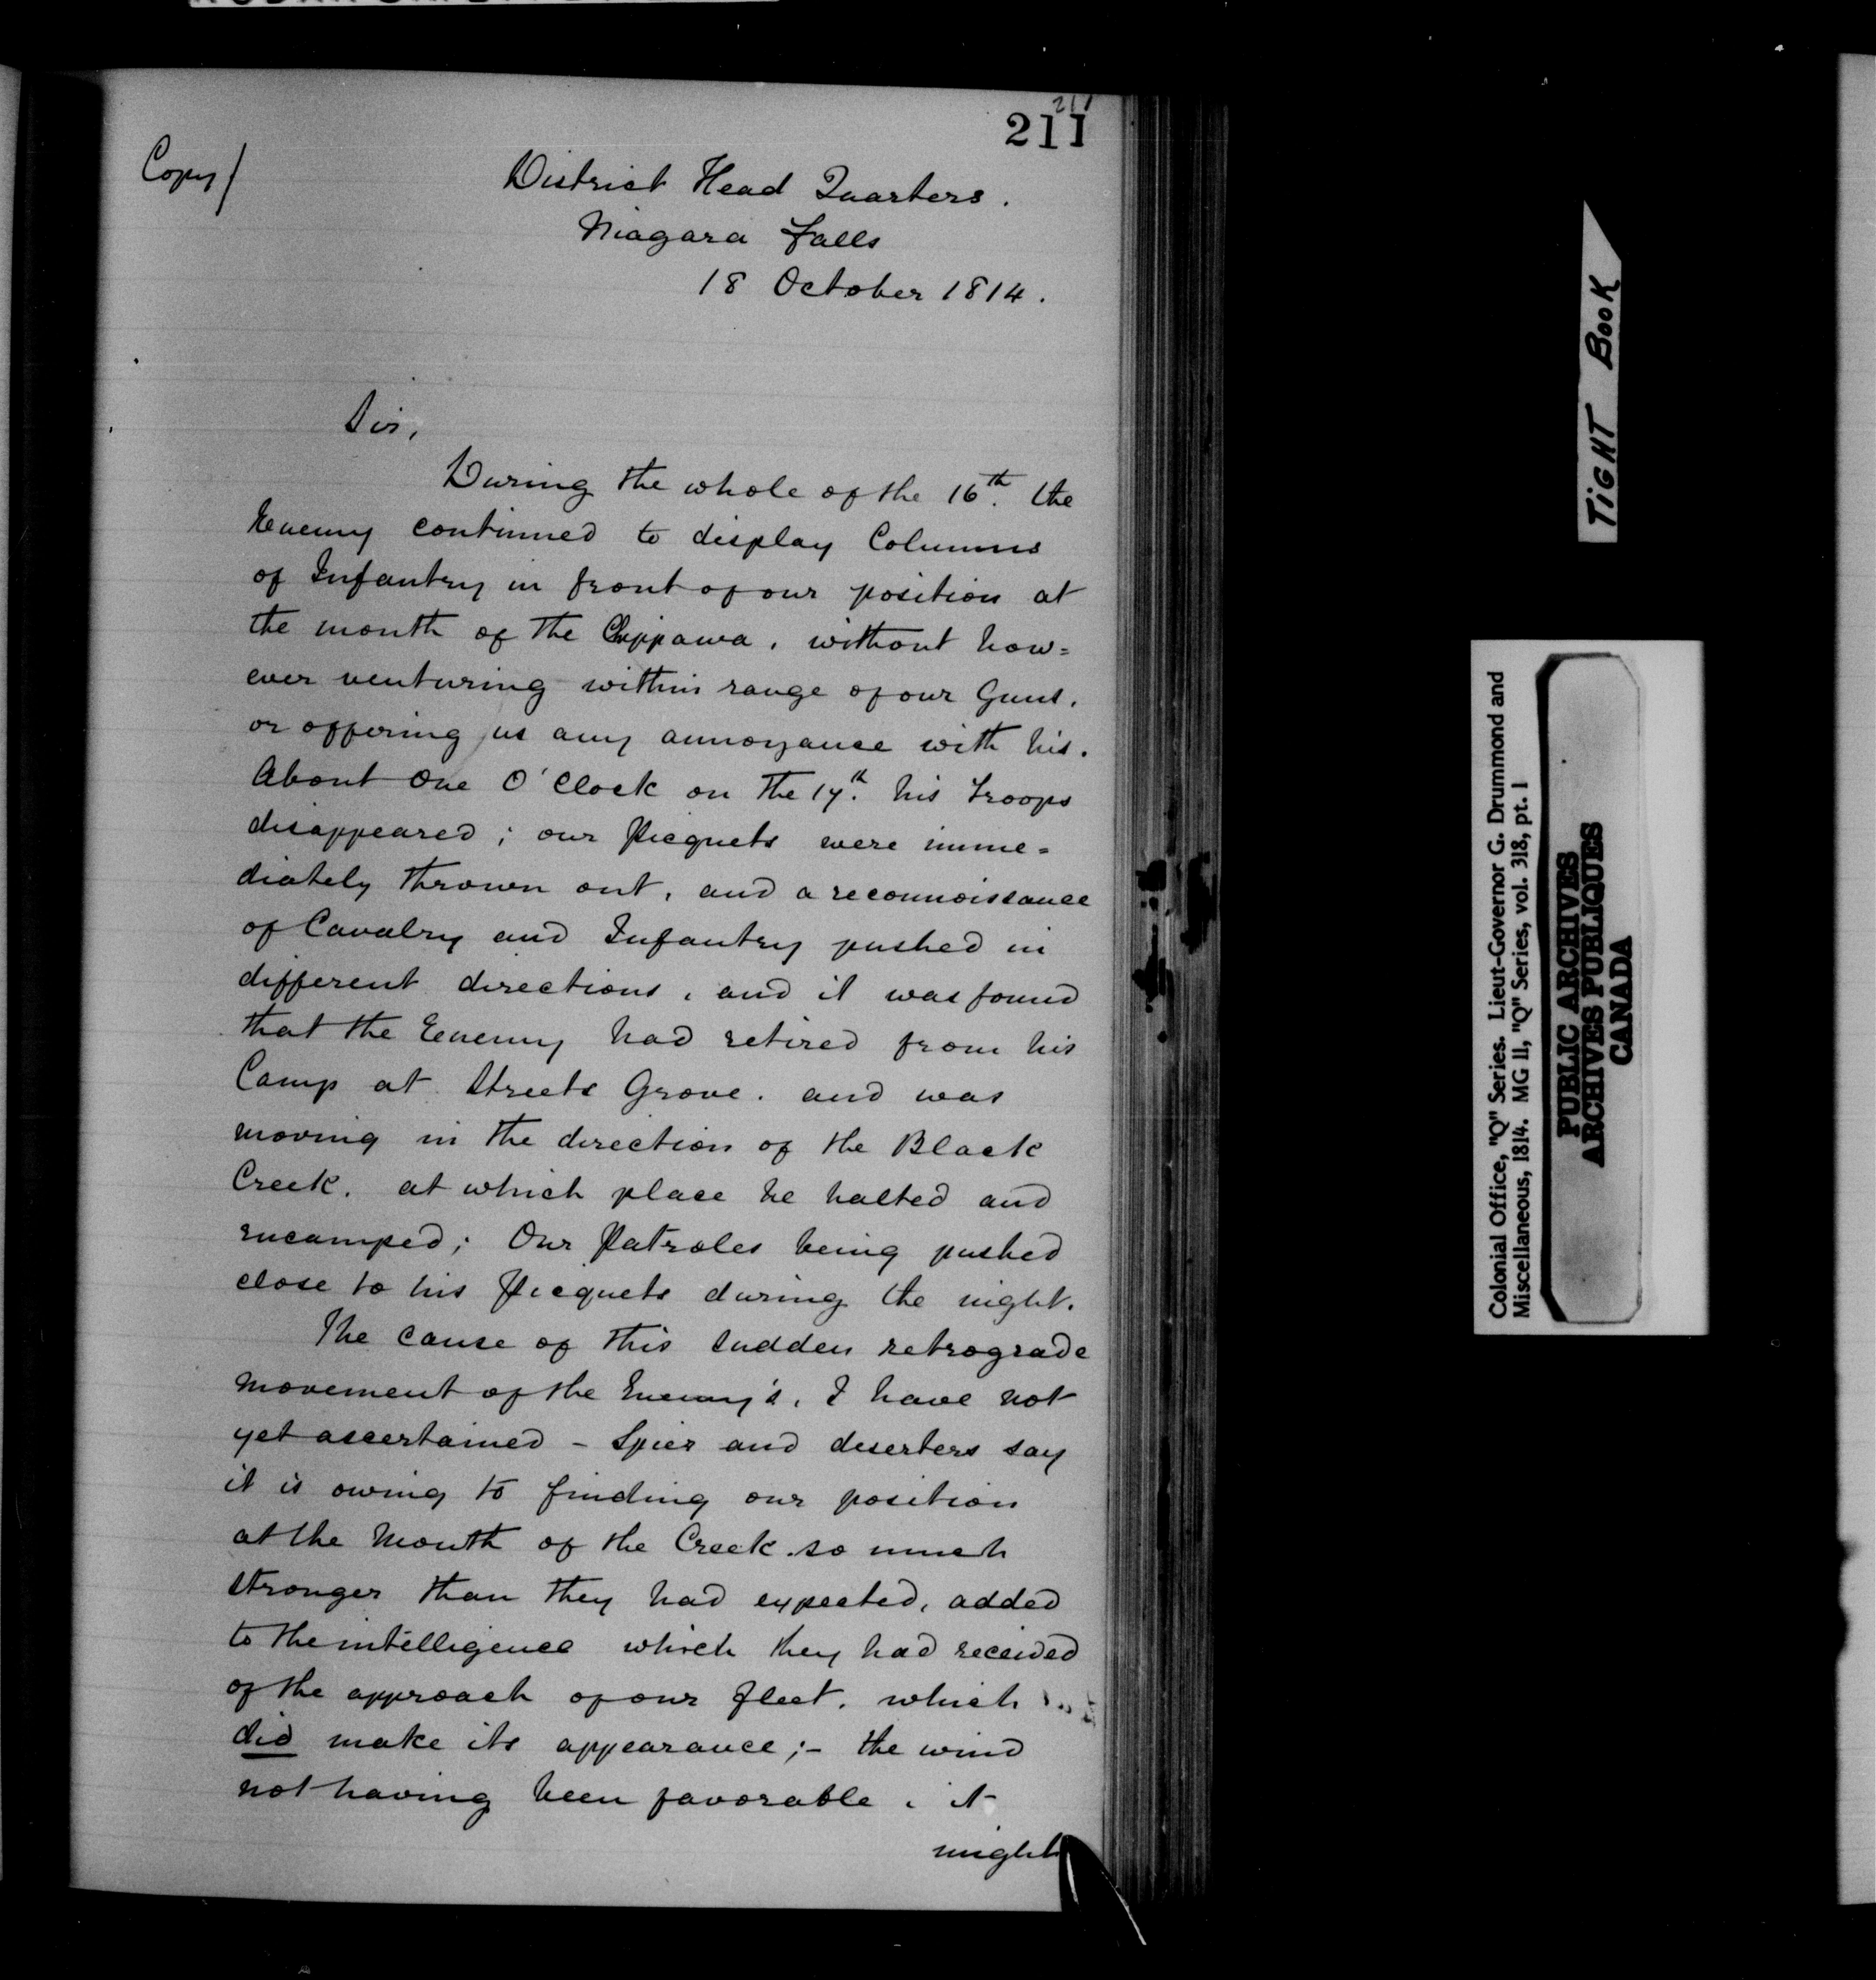 211
211
Copy/
District Head Quarters.
Niagara Falls
18 October 1814.
Sir,
During the whole of the 16th. the
Enemy continued to display Columns
of Infantry in front of our position at
the mouth of the Chippawa, without how=
ever venturing within range of our Guns,
or offering us any annoyance with his.
About One O'Clock on the 17th. his Troops
disappeared; our Picquets were imme=
diately thrown out, and a reconnoissance
of Cavalry and Infantry pushed in
different directions, and it was found
that the Enemy had retired from his
Camp at Streets Grove. and was
moving in the direction of the Black
Creek. at which place he halted and
encamped; Our Patroles being pushed
close to his Picquets during the night.
The cause of this sudden retrograde
movement of the Enemy's, I have not
yet ascertained - Spies and deserters say
it is owing to finding our position
at the Mouth of the Creek so much
stronger than they had expected, added
to the intelligence which they had received
of the approach of our fleet. which
did make its appearance;- the wind
not having been favorable, it
might
TIGHT BOOK
Colonial Office, "Q" Series. Lieut-Governor G. Drummond and
Miscellaneous, 1814. MG 11, "Q" Series, vol. 318, pt. 1
PUBLIC ARCHIVES
ARCHIVES PUBLIQUES
CANADA